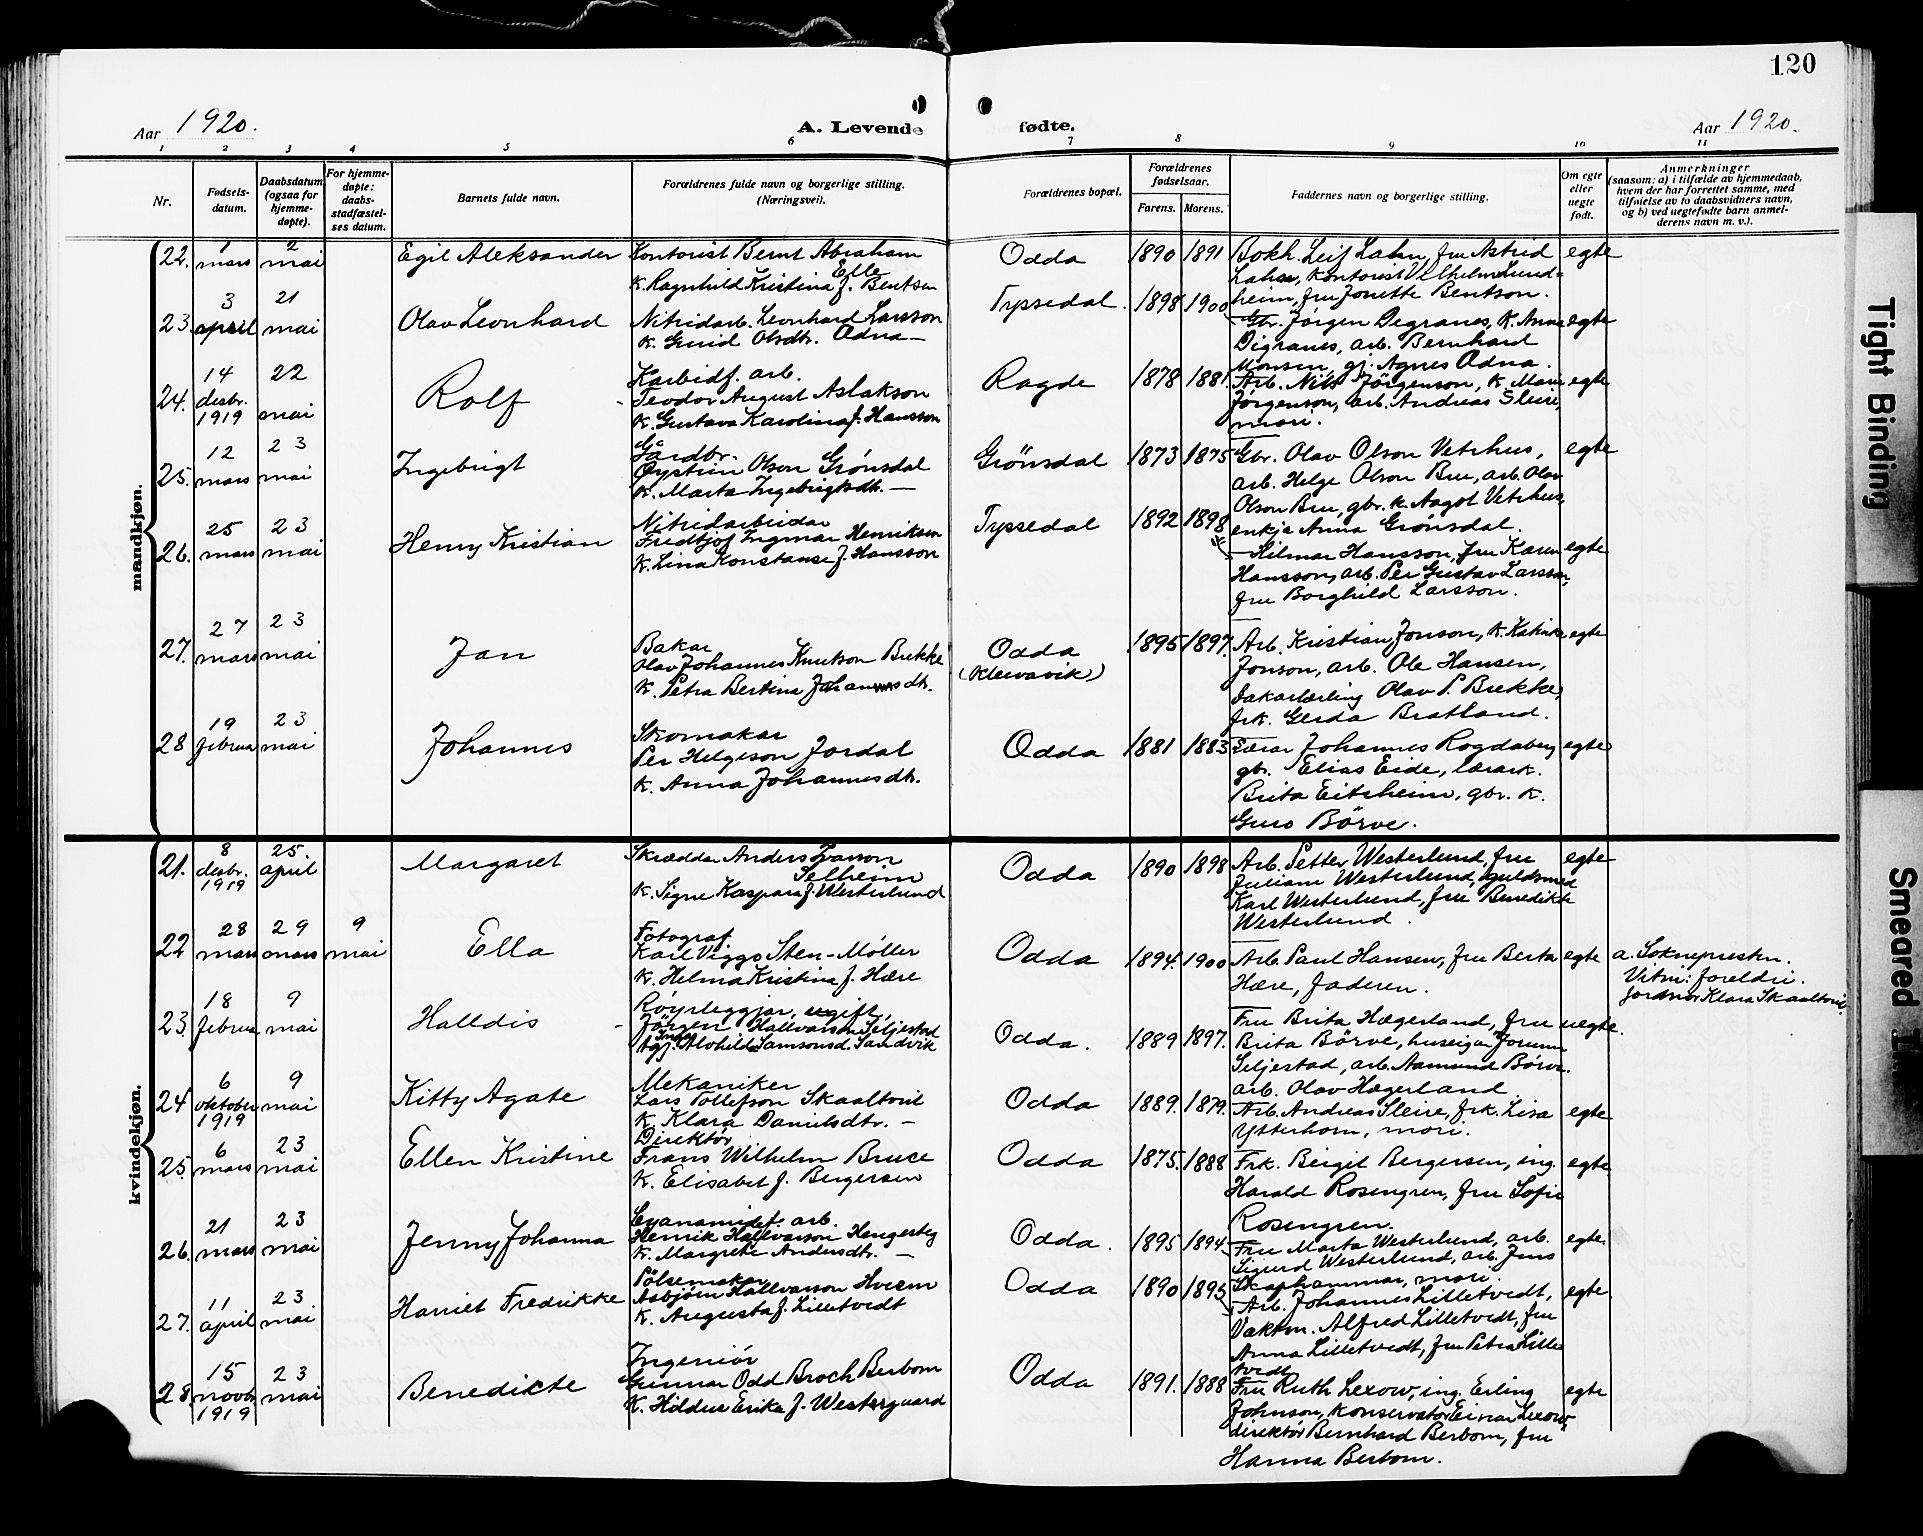 120
Aar 1920.
A. Levende fødte.
Aar 1920.
1 2 3 4 5 6 7 8 9 10 11
Nr.
Fødsels-datum.
Daabsdatum (ogsaa for hjemme-døpte).
For hjemme-døpte: daabs-stadfæstel-ses datum.
Barnets fulde navn.
Forældrenes fulde navn og borgerlige stilling. (Næringsvei).
Forældrenes bopæl.
Forældrenes fødselsaar.
Farens. Morens.
Faddernes navn og borgerlige stilling.
Om egte eller uegte født.
Anmerkninger (saasom: a) i tilfælde av hjemmedaab, hvem der har forrettet samme, med tilføielse av to daabsvidners navn, og b) ved uegtefødte barn anmel-derens navn m. v.).
mandkjøn.
22. 1 mars 2 mai Egil Aleksander Kontorist Bernt Abraham Elle
K. Ragnhild Kristina f. Bentsen
Odda 1890 1891 Bokh. Leif Lahn, fru Astrid
Lahn, Kontorist Vilhelm Lund=
heim, fru Jonette Bentson.
egte
23. 3 april 21 mai Olav Leonhard Nitridarb. Leonhard Larsson
K. Gurid Olsdtr. Odna —
Tyssedal. 1898 1900 Gbr. Jörgen Digranes, K. Anna
Digranes, arb. Bernhard
Monsen, gj. Agnes Odna.
egte
24. 14 desbr. 1919 22 mai Rolf Karbidf. arb.
Teodor August Aslakson
K. Gustava Karolina f. Hansson
Ragde 1878 1881. Arb. Nils Jörgenson, K. Mari
Jörgenson, arb. Andreas Sleire,
mori.
egte
25. 12 mars 23 mai Ingebrigt Gardbr.
Øystein Olson Grönsdal
K. Marta Ingebrigtsdtr. —
Grönsdal 1873 1875 Gbr. Olav Olson Vetrhus,
arb. Helge Olson Bru, arb. Olav
Olson Bru, gbr. k. Aagot Vetrhus,
enkja Anna Grönsdal.
egte
26. 25 mars 23 mai Henry Kristian Nitridarbeidar
Fredtjof Ingmar Henriksen
K. Lina Konstanse f. Hansson
Tyssedal 1892 1898 Hilmar Hansson, fru Karen
Hansson, arb. Per Gustav Larsson,
fru Borghild Larsson.
egte
27. 27 mars 23 mai Jan Bakar
Olav Johannes Knutson Brekke
K. Petra Bertina Johannesdtr.
Odda
(Kleivavik)
1895 1897. Arb. Kristian Jonson, K. Katrine
Jonson, arb. Ole Hansen,
bakarlærling Olav P. Brekke,
frk. Gerda Bratland.
egte
28 19 februar 23 mai Johannes Skomakar
Per Helgeson Jordal
K. Anna Johannesdtr.
Odda 1881 1883 Lærar Johannes Rogdaberg
gbr. Elias Eide, lærark.
Brita Eitrheim, gbr. K.
Guro Börve.
egte
kvindekjøn.
21. 8 desbr. 1919 25 april Margaret Skrædder Anders Ivarson
Selheim
K. Signe Kaspara f. Westerlund
Odda 1890 1898 Arb. Petter Westerlund, fru
Juliane Westerlund, guldsmed
Karl Westerlund, fru Benedikte
Westerlund.
egte
22 28 mars 29 mars 9 mai Ella Fotograf
Karl Viggo Sten-Møller
K. Helma Kristina f. Hære
Odda 1894. 1900 Arb. Paul Hansen, fru Berta
Hære, faderen.
egte a. Soknepresten.
Vitni: foreldri.
jordmor Klara Skaaltveit.
23. 18 februar 9 mai Halldis Röyrleggjar, ugift,
Jörgen Hallvarson Seljestad
og Inga Alvhilda Samsonsd. Sandvik
Odda. 1889 1897. Fru Brita Hægerland, fru
Brita Börve, huseigar Jorunn
Seljestad, arb. Aamund Börve.
arb. Olav Hægerland
uegte.
24 6 oktober 1919 9 mai Kitty Agate Mekaniker
Lars Tollefson Skaaltveit
K. Klara Danielsdtr. —
Odda 1889. 1879. Arb. Andreas Sleire, frk. Lisa
Ytterhorn, mori.
egte
25. 6 mars 23 mai Ellen Kristine Direktör
Frans Wilhelm Bruce
K. Elisabet f. Bergersen
Odda 1875. 1888 Frk. Bergit Bergersen, ing.
Harald Rosengren, fru Sofie
Rosengren.
egte
26. 21 mars 23 mai Jenny Johanna Cyanamidf. arb.
Henrik Hallvarson Hengesteg
K. Margrete Andersdtr. —
Odda. 1895 1894. Fru Marta Westerlund, arb.
Sigurd Westerlund, arb. Jens
Skaphammar, mori.
egte.
27. 11 april 23 mai Harriet Fredrikke Pölsemakar
Asbjörn Hallvarson Hveem
K. Augusta f. Lilletvedt
Odda 1890 1895 Arb. Johannes Lilletvedt,
Vaktm. Alfred Lilletvedt, fru
Anna Lilletvedt, fru Petra Lille
tvedt
egte.
28 15 novbr. 1919 23 mai Benedicte Ingeniör
Gunnar Odd Broch Berbom
K. Hildur Erika f. Westergaard
Odda 1891. 1888 Fru Ruth Lexow, ing. Erling
Johnson, konservator Einar Lexow,
direktör Bernhard Berbom, fru
Hanna Berbom.
egte
Tight Binding
Smeared